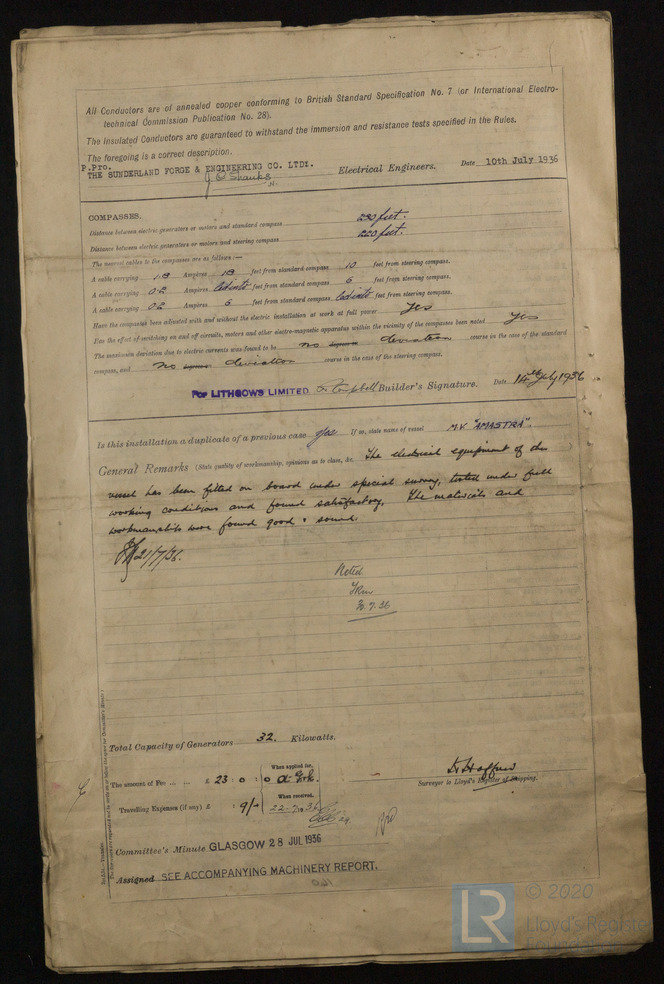 All Conductors are of annealed copper conforming to British Standard Specification No. 7 (or International Electro-
technical Commission Publication No. 28).
The Insulated Conductors are guaranteed to withstand the immersion and resistance tests specified in the Rules.
The foregoing is a correct description.
P.Pro.
THE SUNDERLAND FORGE & ENGINEERING CO. LTD. Electrical Engineers. Date 10th July 1936
COMPASSES.
Distance between electric generators or motors and standard compass 230 feet.
Distance between electric generators or motors and steering compass 220 feet.
The nearest cables to the compasses are as follows:—
A cable carrying 1.8 Ampères 18 feet from standard compass 10 feet from steering compass.
A cable carrying 0.2 Ampères led into feet from standard compass 6 feet from steering compass.
A cable carrying 0.2 Ampères 6 feet from standard compass led into feet from steering compass.
Have the compasses been adjusted with and without the electric installation at work at full power Yes
Has the effect of switching on and off circuits, motors and other electro-magnetic apparatus within the vicinity of the compasses been noted Yes
The maximum deviation due to electric currents was found to be no deviation course in the case of the standard
compass, and no deviation course in the case of the steering compass.
For LITHGOWS LIMITED Builder's Signature. Date 14th July 1936
Is this installation a duplicate of a previous case Yes If so, state name of vessel M.V. "AMASTRA".
General Remarks (State quality of workmanship, opinions as to class, &c. The electrical equipment of this
vessel has been fitted on board under special survey, tested under full
working conditions and found satisfactory. The materials and
workmanship were found good & sound
21/7/36.
Noted
7.36
Total Capacity of Generators 32. Kilowatts.
The amount of Fee ... ... £ 23 : 0 : 0 When applied for,
Surveyor to Lloyd's Register of Shipping.
Travelling Expenses (if any) £ : 9/- When received,
22.7.36
Committee's Minute GLASGOW 28 JUL 1936
Assigned SEE ACCOMPANYING MACHINERY REPORT.
LR © 2020
Lloyd's Register
Foundation